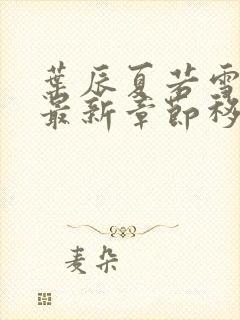 葉辰夏若雪
最新章節移
麦朵